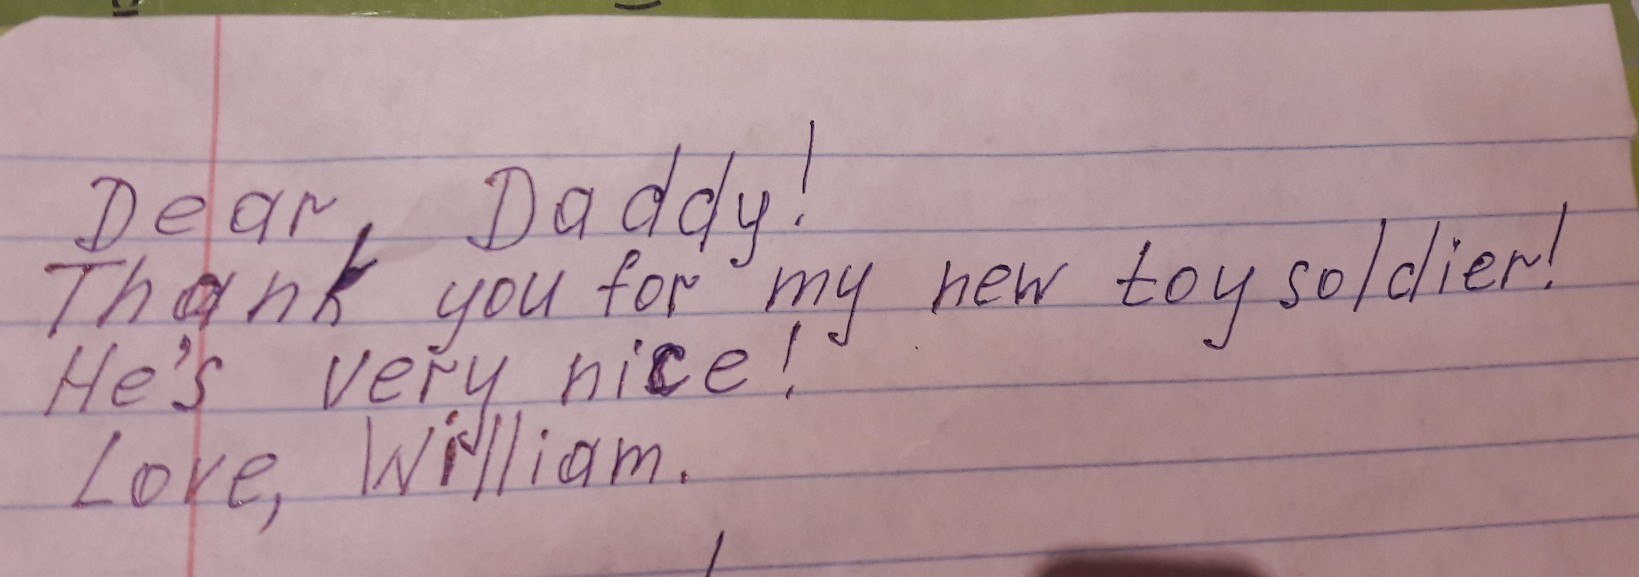 Dear, Daddy!
Thank you for my new toy soldier!
He's very nice!
Love, William.